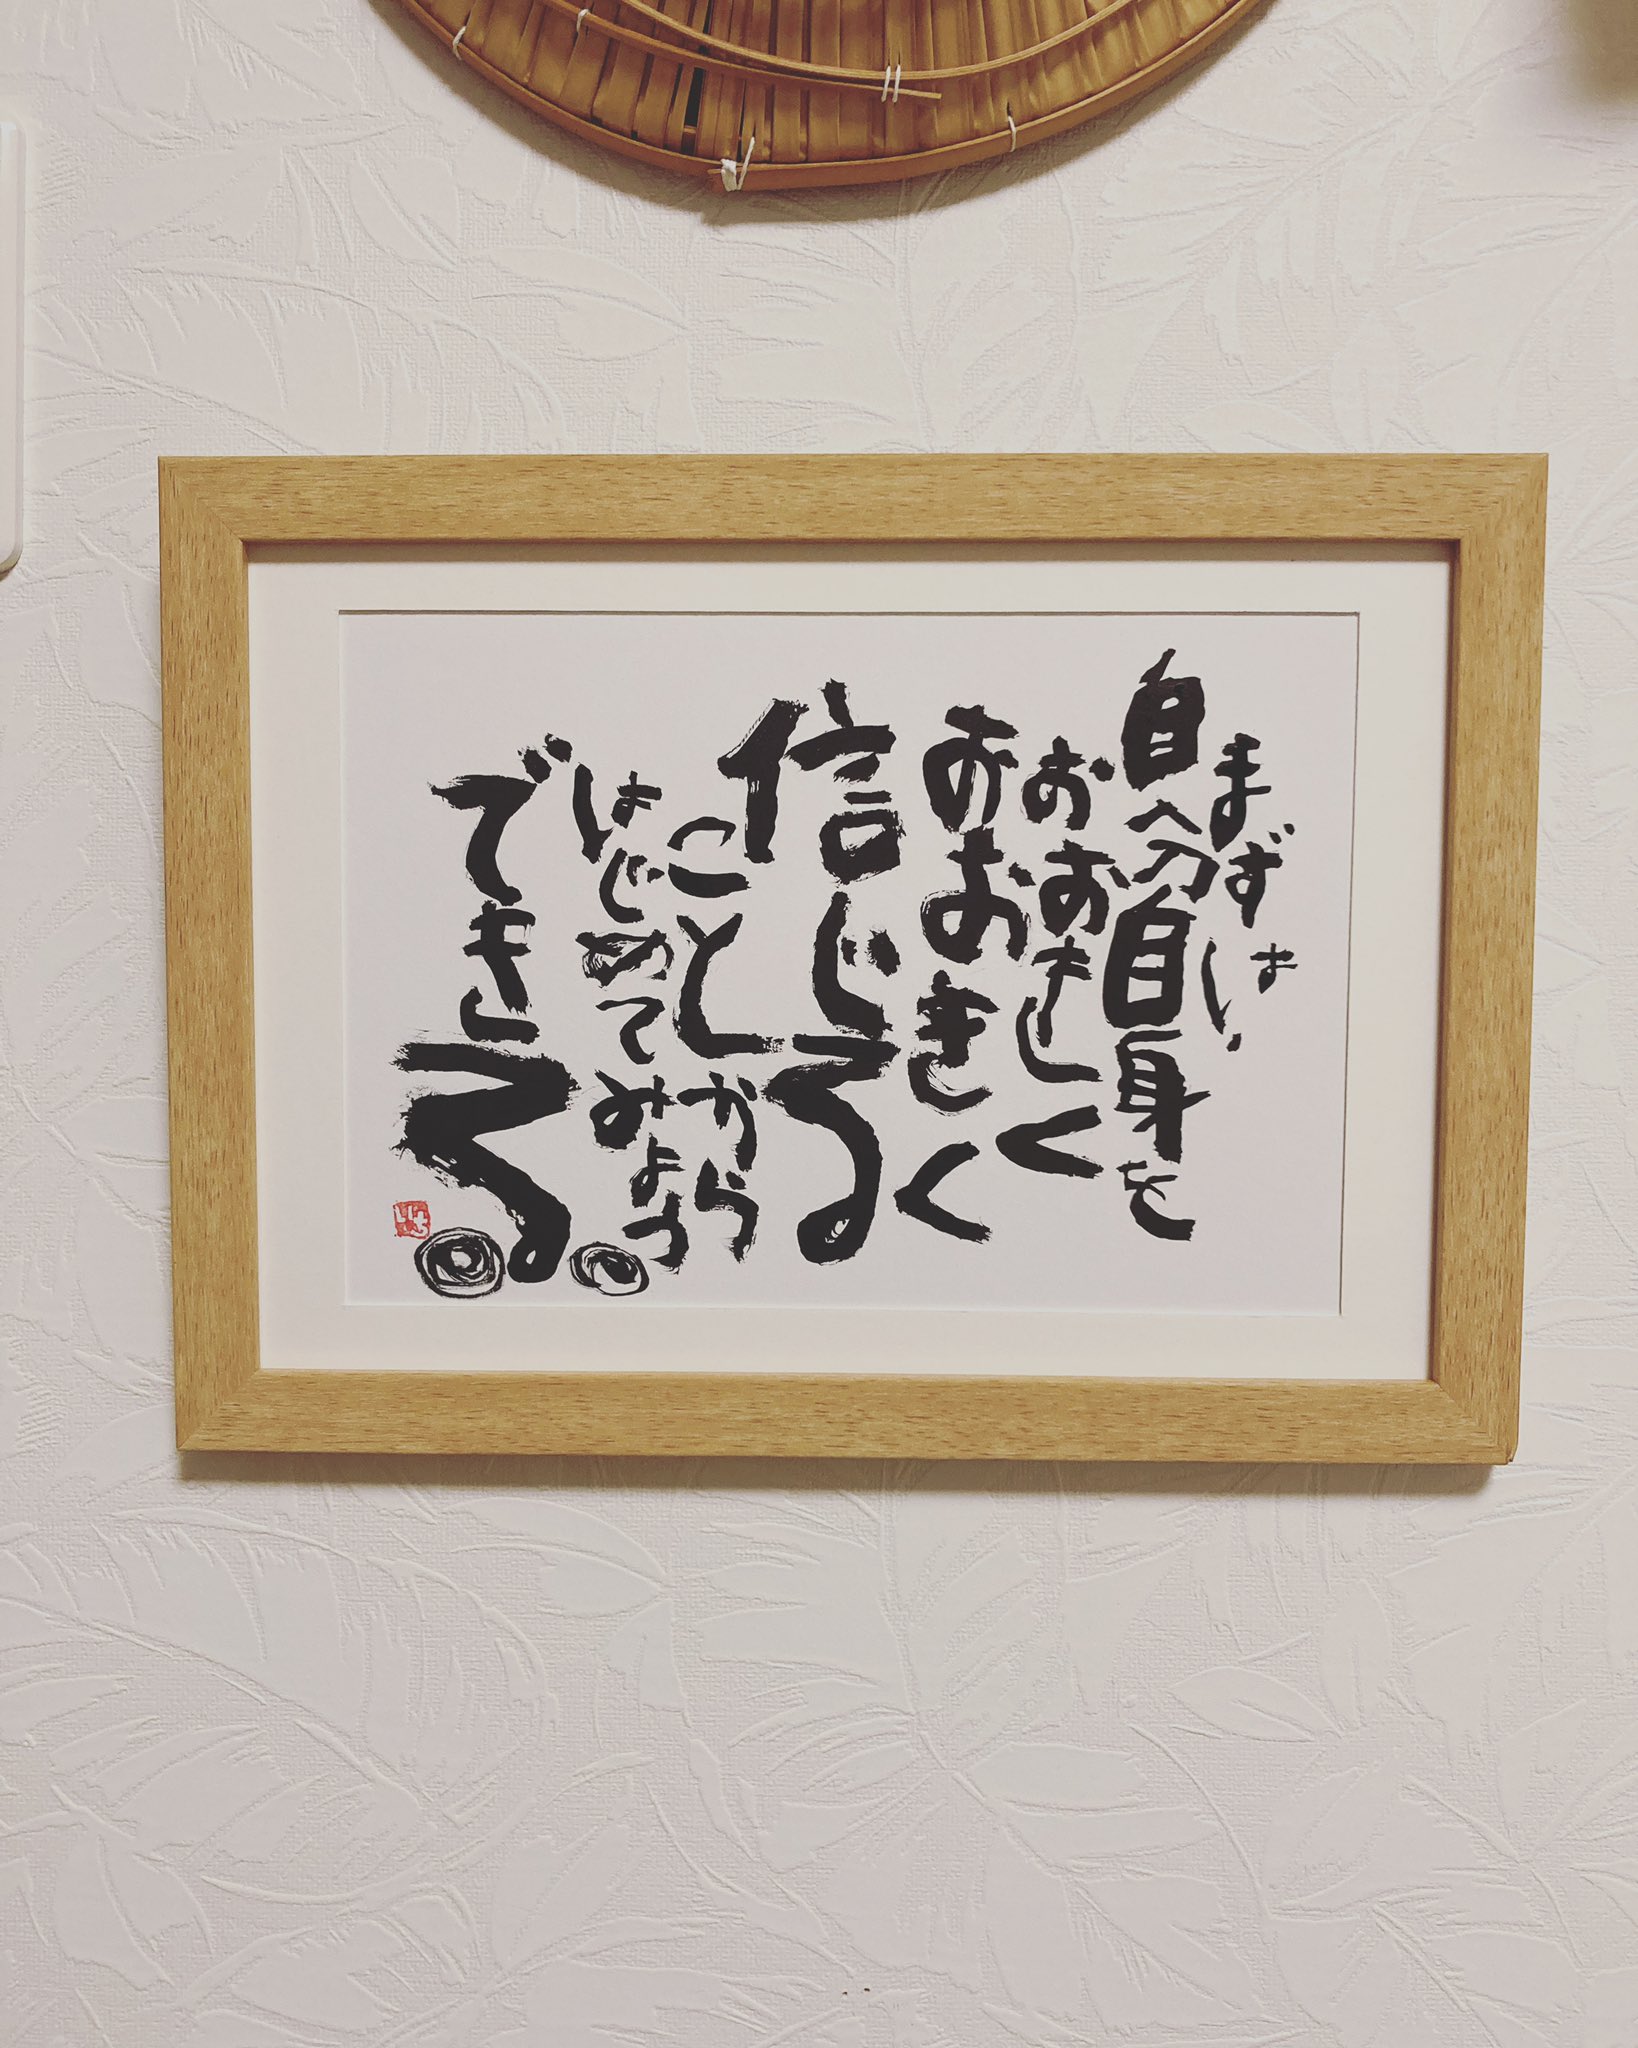 まずは
自分自身を
おおきく
おおきく
信じる
ことから
はじめてみよう。
できる。